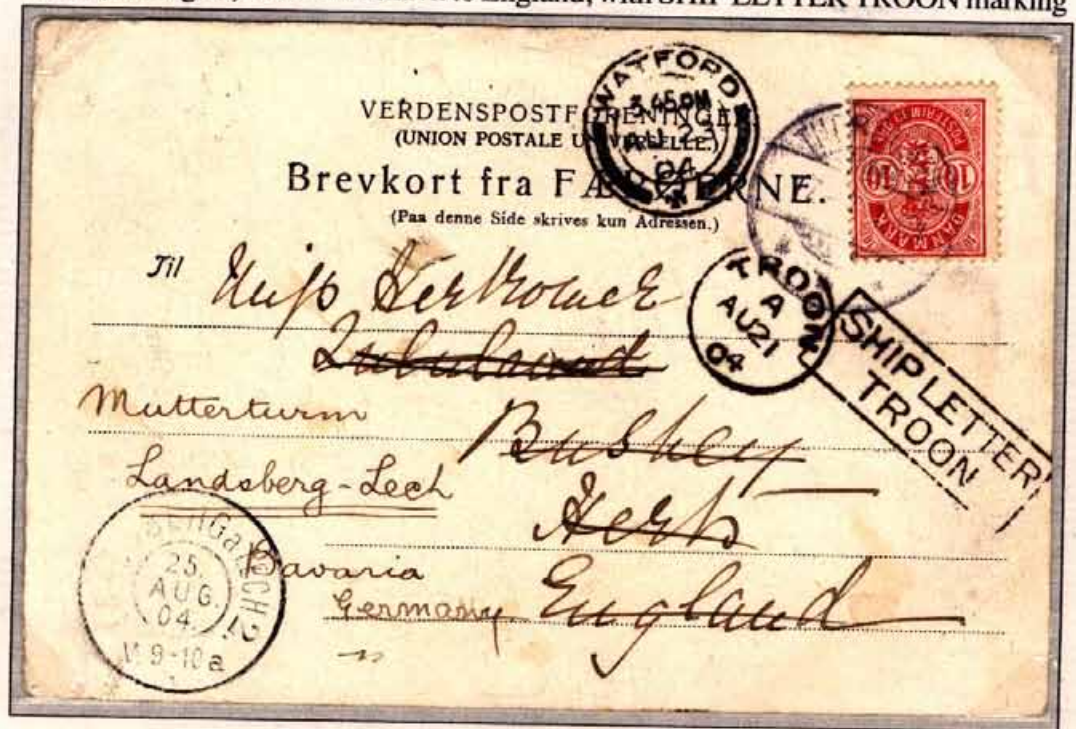 to England, with SHIP LETTER TROON marking
VERDENSPOSTFORENINGEN
(UNION POSTALE UNIVERSELLE.)
Brevkort fra FÆRØERNE.
(Paa denne Side skrives kun Adressen.)
WATFORD
3.45PM
AU 23
04
10 10
DANMARK
TROON
A
AU21
04
SHIP LETTER
TROON
Til Miss Herkomer
Lululaund
Mutterturm
Bushey
Landsberg-Lech
Herts
Bavaria
England
Germany.
25.
AUG.
04.
V. 9-10 a